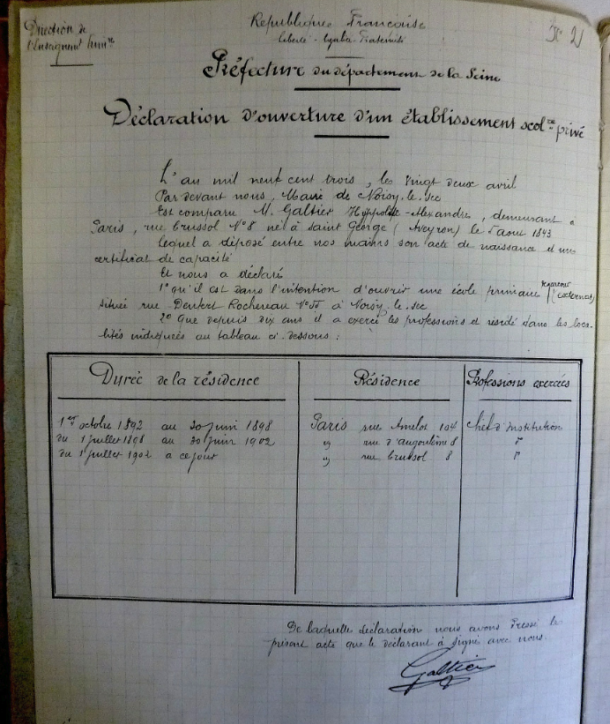 Direction de
l'Enseignement Prim.re
République Française
Liberté - Egalité - Fraternité
N° 2
Préfecture du département de la Seine
Déclaration d'ouverture d'un établissement scol.re privé
L'an mil neuf cent trois, le vingt deux avril
Par devant nous, Maire de Noisy-le-Sec
Est comparu M. Galtier Hyppolite-Alexandre, demeurant à
Paris, rue brussol N° 8 né à Saint George (Aveyron) le 5 aout 1843
lequel a déposé entre nos mains son acte de naissance et un
certificat de capacité
Et nous a déclaré
1° qu'il est dans l'intention d'ouvrir une école primaire (externat)
située rue Denfert Rochereau N° à Noisy-le-Sec
2° Que depuis dix ans il a exercé les professions et résidé dans les loca-
lités indiquées au tableau ci-dessous :
Durée de la résidence Résidence Professions exercées
1er octobre 1892 au 30 juin 1898 Paris rue Amelot 104 chef d'institution
du 1 juillet 1898 au 30 juin 1902 " rue d'angoulème 8 "
du 1 juillet 1902 a ce jour " rue brussol 8 "
De laquelle déclaration nous avons dressé le
présent acte que le déclarant à signé avec nous.
Galtier